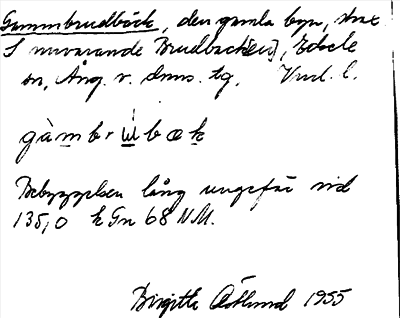 Gammbrudbäck, den gamla byn, strax
S nuvarande Brudbäck[en], Edsele
sn, Ång. v. dms. tg. Vml. l.
gàmbrʉ̀bæk
Bebyggelsen låg ungefär vid
135,0 k Gn 68 NM.
Birgitta Östlund 1955